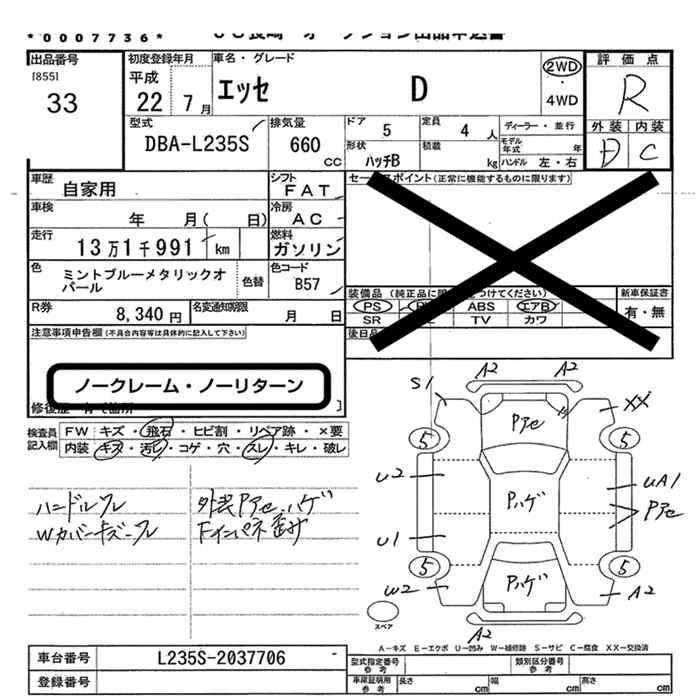 *0007736*
出品番号
[855]
33
初度登録年月
平成
22 7月
車名・グレード
エッセ D
2WD
・
4WD
評価点
R
外装 内装
D C
型式
DBA-L235S
排気量
660
CC
ドア 5
定員 4人
形状
ハッチB
積載 kg
ディーラー・並行
モデル年式 年
ハンドル 左・右
車歴
自家用
シフト
FAT
セー ポイント(正常に機能するものに限ります)
車検
年 月( 日)
冷房
AC
走行
13万1千991 km
燃料
ガソリン
色
ミントブルーメタリックオパール
色替
色コード
B57
装備品(純正品に つけてください)
PS ABS エアB
SR TV カワ
新車保証書
有・無
R券
8,340円
名変通知期限
月 日
後日品
注意事項申告欄(不具合内容等は具体的に記入して下さい)
ノークレーム・ノーリターン
検査員記入欄
FW キズ・飛石・ヒビ割・リペア跡・×要
内装 キズ・汚レ・コゲ・穴・スレ・キレ・破レ
ハンドルスレ
Wカバーキズ・スレ
外装Pアセ、ハゲ
Fインパネ歪み
A2 A2
S1 XX
Pアセ
5 5
U2 UA1
Pハゲ Pアセ
U1
5 5
Pハゲ
W2 A2
A2
スペア
A-キズ E-エクボ U-凹み W-補修跡 S-サビ C-腐食 XX-交換済
車台番号 L235S-2037706
登録番号
型式指定番号 参考
類別区分番号 参考
車庫証明用 参考
長さ cm 幅 cm 高さ cm